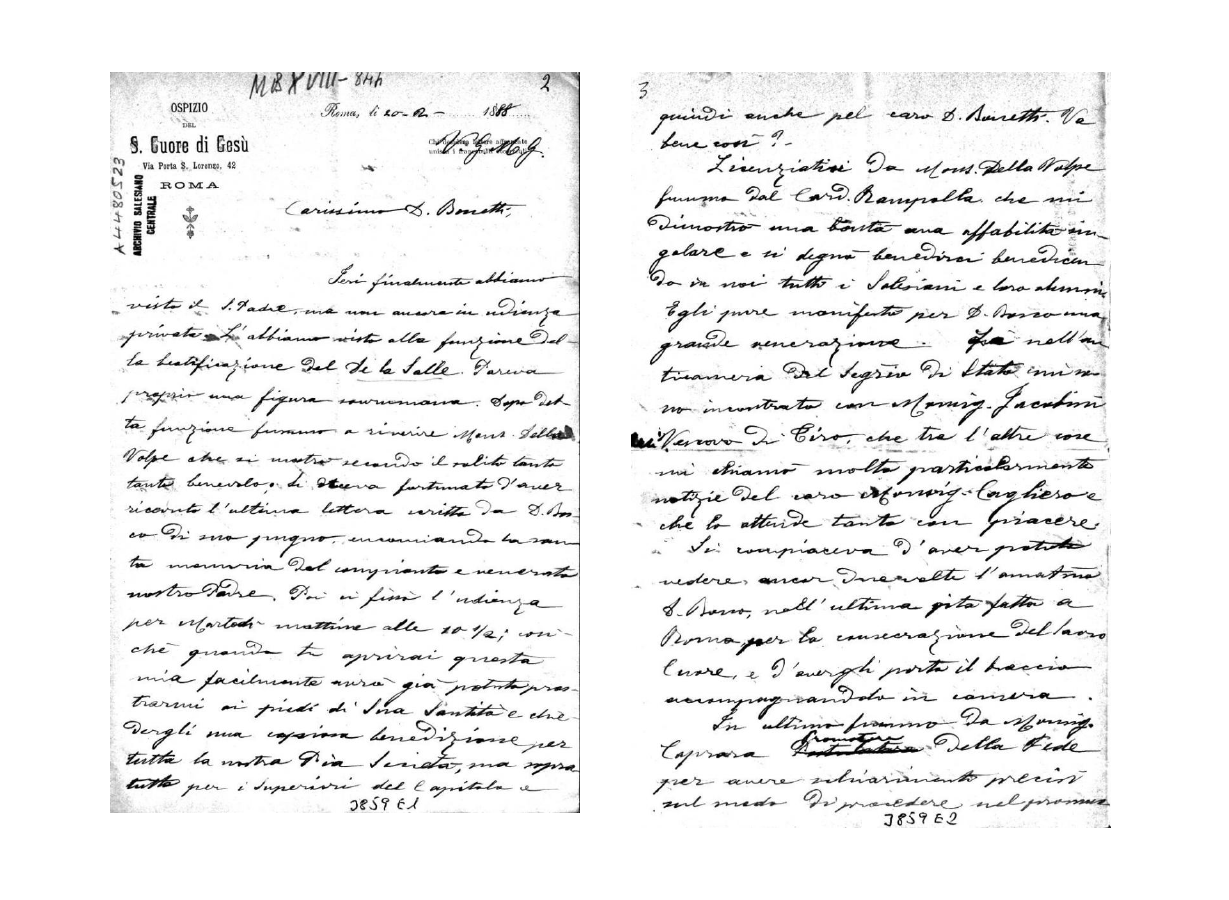 MB XVIII - 844
2
OSPIZIO
DEL
S. Cuore di Gesù
Via Porta S. Lorenzo, 42
ROMA
Roma, li 20-2- 1888
V.G.M.G.
A4480523
ARCHIVIO SALESIANO
CENTRALE
Carissimo D. Bonetti,
Ieri finalmente abbiamo
visto il S. Padre, ma non ancora in udienza
privata. L'abbiamo visto alla funzione del-
la beatificazione del De la Salle. Pareva
proprio una figura sovrumana. Dopo det-
ta funzione fummo a riverire Mons. Della
Volpe che si mostrò secondo il solito tanto
tanto benevolo; si diceva fortunato d'aver
ricevuto l'ultima lettera scritta da D. Bos-
co di suo pugno, encomiando la san-
ta memoria del compianto e venerato
nostro Padre. Poi ci fissò l'udienza
per Martedì mattina alle 10 1/2; così-
chè quando tu aprirai questa
mia facilmente avrò già potuto pros-
trarmi ai piedi di Sua Santità e chie-
dergli una copiosa benedizione per
tutta la nostra Pia Società, ma sopra
tutto per i Superiori del Capitolo e
3859 E1
3
quindi anche pel caro D. Bonetti. Va
bene così?
Licenziatici da Mons. Della Volpe
fummo dal Card. Rampolla che mi
dimostrò una bontà una affabilità sin-
golare e si degnò benedirci benedicen
do in noi tutti i Salesiani e loro alunni.
Egli pure manifestò per D. Bosco una
grande venerazione. nell'an
ticamera del Segrio di Stato mi so-
no incontrato con Monsig. Jacobini
Vescovo di Tiro, che tra l'altre cose
mi chiamò molto particolarmente
notizie del caro Monsig. Cagliero e
che lo attende tanto con piacere.
Si compiaceva d'aver potuto
vedere ancor due volte l'amatmo
D. Bosco, nell'ultima gita fatta a
Roma per la consecrazione del Sacro
Cuore, e d'avergli porto il braccio
accompagnandolo in camera.
In ultimo fummo da Monsig.
Promotore
Caprara Postulatore della Fede
per avere schiarimenti precisi
sul modo di procedere nel promuo
3859 E2